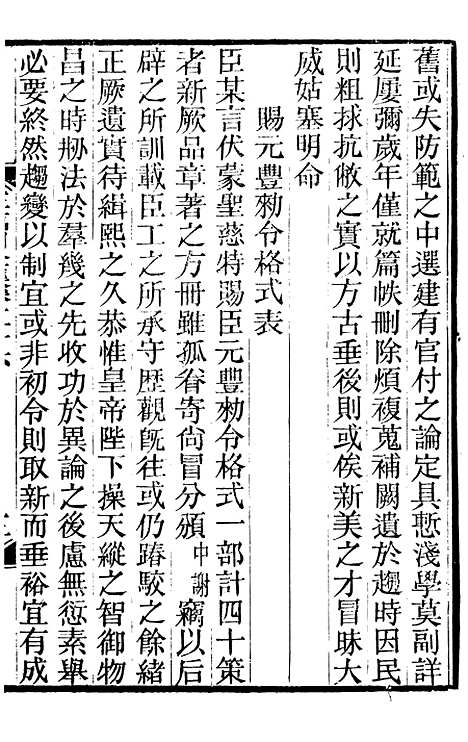 舊或失防範之中選建有官付之論定具慙淺學莫副詳
延屢彌歲年僅就篇帙刪除煩複蒐補闕遺於趨時因民
則粗捄抗敝之實以方古垂後則或俟新美之才冒昧大
威姑塞明命
賜元豐勑令格式表
臣某言伏蒙聖慈特賜臣元豐勑令格式一部計四十策
者新厥品章著之方冊雖孤眷寄尙冒分頒中謝竊以后
辟之所訓載臣工之所承守歷觀旣往或仍踳駮之餘緒
正厥遺實待緝熙之久恭惟皇帝陛下操天縱之智御物
昌之時刱法於羣幾之先收功於異論之後慮無愆素舉
必要終然趨變以制宜或非初令則取新而垂裕宜有成